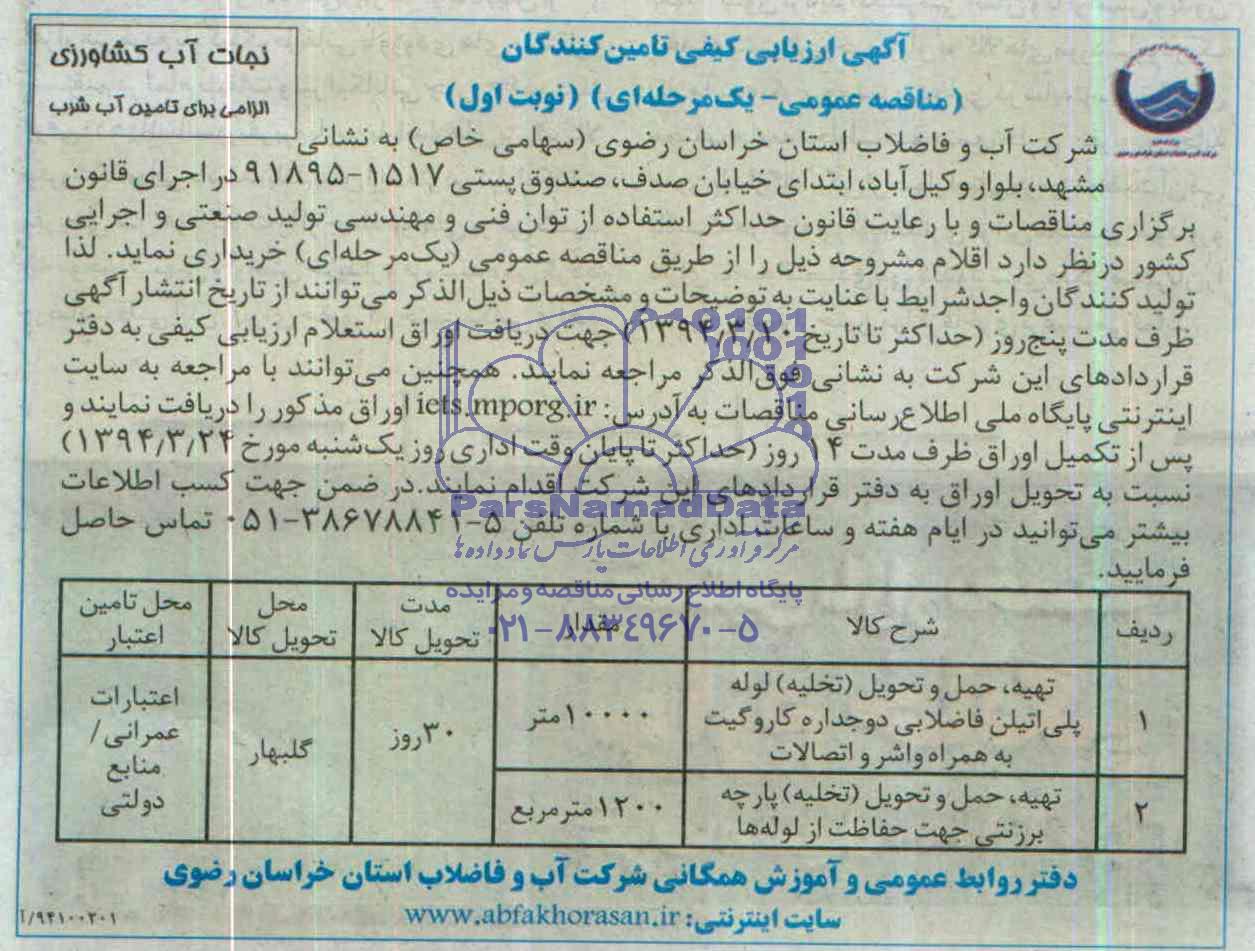 نجات آب کشاورزی
الزامی برای تامین آب شرب
آگهی ارزیابی کیفی تامین کنندگان
(مناقصه عمومی- یک‌مرحله‌ای) (نوبت اول)
شرکت آب و فاضلاب استان خراسان رضوی (سهامی خاص) به نشانی
مشهد، بلوار وکیل‌آباد، ابتدای خیابان صدف، صندوق پستی ۱۵۱۷-۹۱۸۹۵ در اجرای قانون
برگزاری مناقصات و با رعایت قانون حداکثر استفاده از توان فنی و مهندسی تولید صنعتی و اجرایی
کشور درنظر دارد اقلام مشروحه ذیل را از طریق مناقصه عمومی (یک‌مرحله‌ای) خریداری نماید. لذا
تولیدکنندگان واجدشرایط با عنایت به توضیحات و مشخصات ذیل‌الذکر می‌توانند از تاریخ انتشار آگهی
ظرف مدت پنج‌روز (حداکثر تا تاریخ ۱۳۹۴/۳/۱۰) جهت دریافت اوراق استعلام ارزیابی کیفی به دفتر
قراردادهای این شرکت به نشانی فوق‌الذکر مراجعه نمایند. همچنین می‌توانند با مراجعه به سایت
اینترنتی پایگاه ملی اطلاع‌رسانی مناقصات به آدرس: iets.mporg.ir اوراق مذکور را دریافت نمایند و
پس از تکمیل اوراق ظرف مدت ۱۴ روز (حداکثر تا پایان وقت اداری روز یک‌شنبه مورخ ۱۳۹۴/۳/۲۴)
نسبت به تحویل اوراق به دفتر قراردادهای این شرکت اقدام نمایند. در ضمن جهت کسب اطلاعات
بیشتر می‌توانید در ایام هفته و ساعات اداری با شماره تلفن ۵-۳۸۶۷۸۸۴۱-۰۵۱ تماس حاصل
فرمایید.
ParsNamadData
مرکز فرآوری اطلاعات پارس نماد داده ها
پایگاه اطلاع رسانی مناقصه و مزایده
۰۲۱-۸۸۳۴۹۶۷۰-۵
ردیف شرح کالا مقدار مدت تحویل کالا محل تحویل کالا محل تامین اعتبار
۱ تهیه، حمل و تحویل (تخلیه) لوله
پلی‌اتیلن فاضلابی دوجداره کاروگیت
به همراه واشر و اتصالات
۱۰۰۰۰ متر
۲ تهیه، حمل و تحویل (تخلیه) پارچه
برزنتی جهت حفاظت از لوله‌ها
۱۲۰۰ مترمربع
۳۰ روز
گلبهار
اعتبارات
عمرانی/
منابع
دولتی
دفتر روابط عمومی و آموزش همگانی شرکت آب و فاضلاب استان خراسان رضوی
سایت اینترنتی: www.abfakhorasan.ir